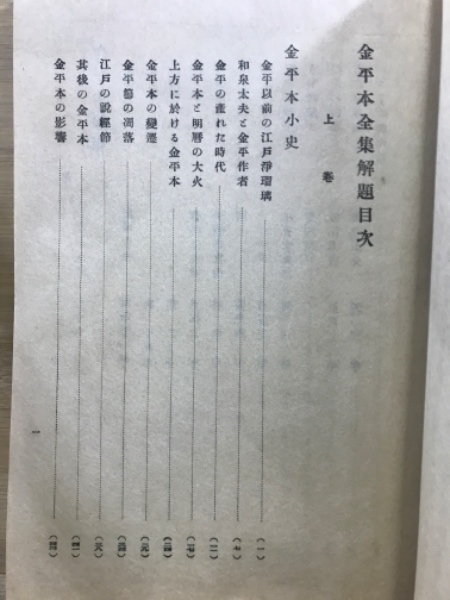 金平本全集解題目次
上卷
金平本小史
金平以前の江戸淨瑠璃 (一)
和泉太夫と金平作者
金平の產れた時代
金平本と明曆の大火
上方に於ける金平本
金平本の變遷
金平節の凋落
江戸の說經節
其後の金平本
金平本の影響
一